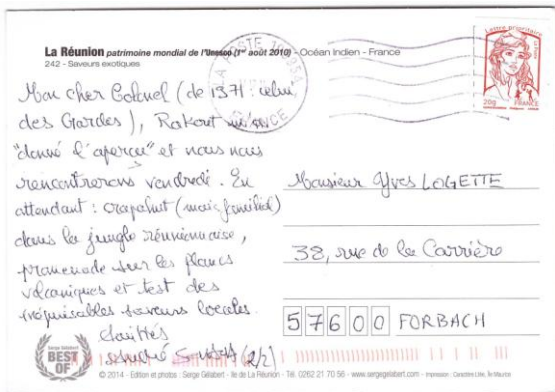 La Réunion patrimoine mondial de l'Unesco (1er août 2010) - Océan Indien - France
242 - Saveurs exotiques
LA POSTE
FRANCE
Lettre prioritaire
20g FRANCE
Mon cher Colonel (de 1371 : celui
des Gardes), Rakout m'a
"donné l'aperçu" et nous nous
rencontrerons vendredi. En
attendant : crapahut (mais familial)
dans la jungle réunionnaise,
promenade sur les flancs
volcaniques et test des
saveurs locales.
Amitiés
André (2/2)
Monsieur Yves LOGETTE
38, rue de la Carrière
57600 FORBACH
Serge Gélabert
BEST OF
© 2014 - Edition et photos : Serge Gélabert - Ile de La Réunion - Tél. 0262 21 70 56 - www.sergegelabert.com - Impression : Caractère Ltée, Ile Maurice